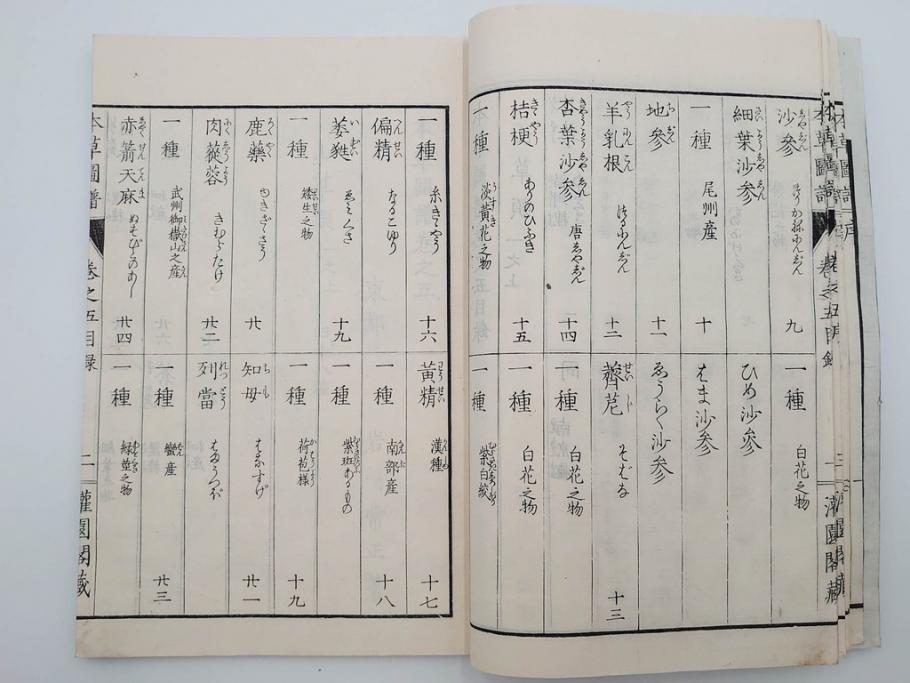 沙參 九
一種 白花之物
細葉沙參
ひめ沙參
一種 尾州産 十
はま沙參
地參 十一
ゑうらく沙參
羊乳根 つるにんじん 十二
薺苨 そばな 十三
杏葉沙參 唐志やじん 十四
一種 白花之物
桔梗 ありのひふき 十五
一種 白花之物
一種 淡黄花之物
一種 紫白絞
本草圖譜 卷之五目錄 一 灌園閣藏
一種 糸きゝやう 十六
黄精 漢種 十七
偏精 なるこゆり
一種 南部産 十八
萎蕤 ゑみくさ 十九
一種 紫斑あるもの
一種 穂生之物
一種 荷苞樣 十九
鹿藥 やきざさう 廿
知母 はなすげ 廿一
肉蓯蓉 きむらたけ 廿二
列當 はまうつぼ
一種 武州御嶽山之産
一種 蠻産 廿三
赤箭天麻 ぬすびとのあし 廿四
一種 緑莖之物
本草圖譜 卷之五目錄 二 灌園閣藏